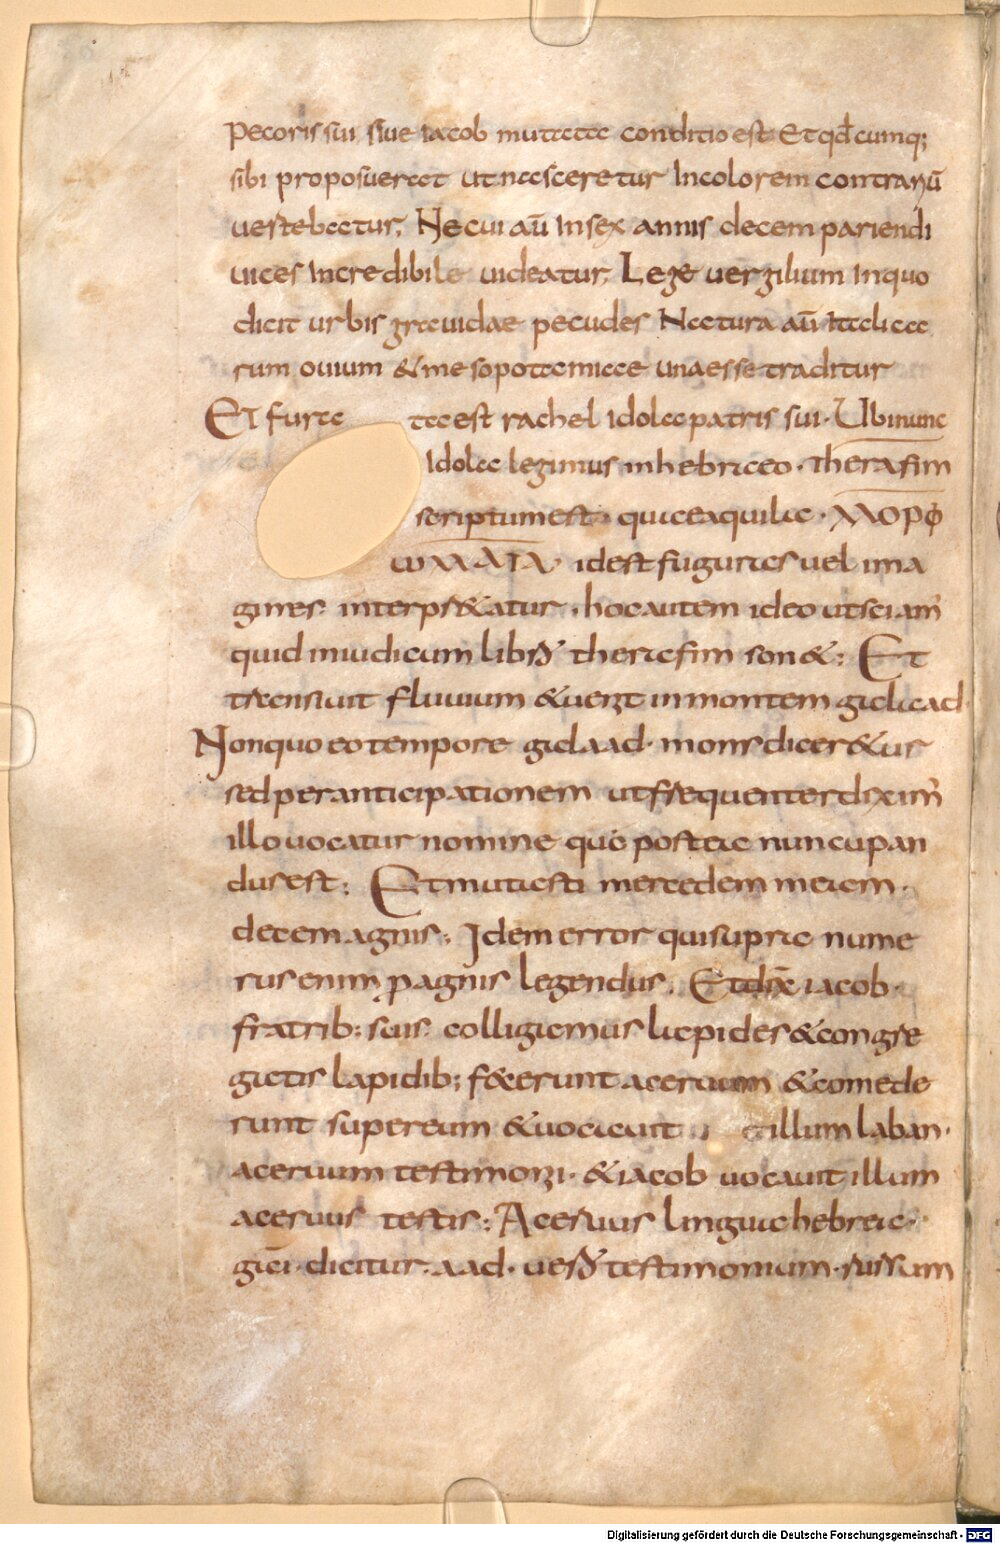 pecoris sui siue iacob mutata conditio est Et qđ cumq;
sibi proposuerat ut nasceretur Incolorem contrariū
uertebatur, Ne cui aū Insex annis decem pariendi
uices Incredibile uideatur, Lege uergilium Inquo
dicit urbis grauidae pecudes Natura aū Italica
rum ouium & mesopotamicae una esse traditur
Et fura ta est rachel Idola patris sui · Ubi nunc
Idola legimus in hebraeo · therafim
scriptum est quae aquila · ΜΟΡΦ
ωΜΑΤΑ id est figuras uel ima
gines interpr&atur · hoc autem ideo ut sciam
quid in iudicum libro therafim son& : Et
transiuit fluuium & uenit in montem galaad ·
Non quo eo tempore galaad · mons dicer&ur
sed per anticipationem ut frequenter dixim
illo uocatur nomine quo postea nuncupan
dus est : Et mutasti mercedem meam ·
decem agnis : Idem error qui supra nume
rus enim p agnis legendus . Et dix iacob ·
fratrib; suis colligamus lapides & congre
gatis lapidib; fecerunt aceruum & comede
runt super eum & uocauit illum laban ·
aceruum testimonii · & iacob uocauit illum
aceruus testis : Aceruus lingua hebrea ·
gal · dicitur · aad · uero testimonium · rursum
Digitalisierung gefördert durch die Deutsche Forschungsgemeinschaft - DFG